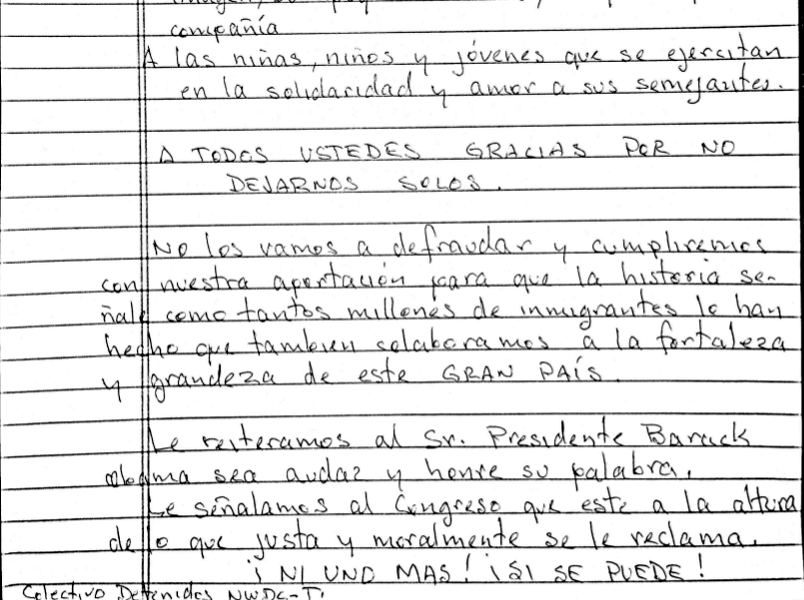 compañía
A las niñas, niños y jóvenes que se ejercitan
en la solidaridad y amor a sus semejantes.
A TODOS USTEDES GRACIAS POR NO
DEJARNOS SOLOS.
No los vamos a defraudar y cumpliremos
con nuestra aportación para que la historia se-
ñale como tantos millones de inmigrantes lo han
hecho que tambien colaboramos a la fortaleza
y grandeza de este GRAN PAÍS.
Le reiteramos al Sr. Presidente Barack
obama sea audaz y honre su palabra.
Le señalamos al Congreso que este a la altura
de lo que justa y moralmente se le reclama.
¡NI UNO MAS! ¡SI SE PUEDE!
Colectivo Detenidos NWDC-T